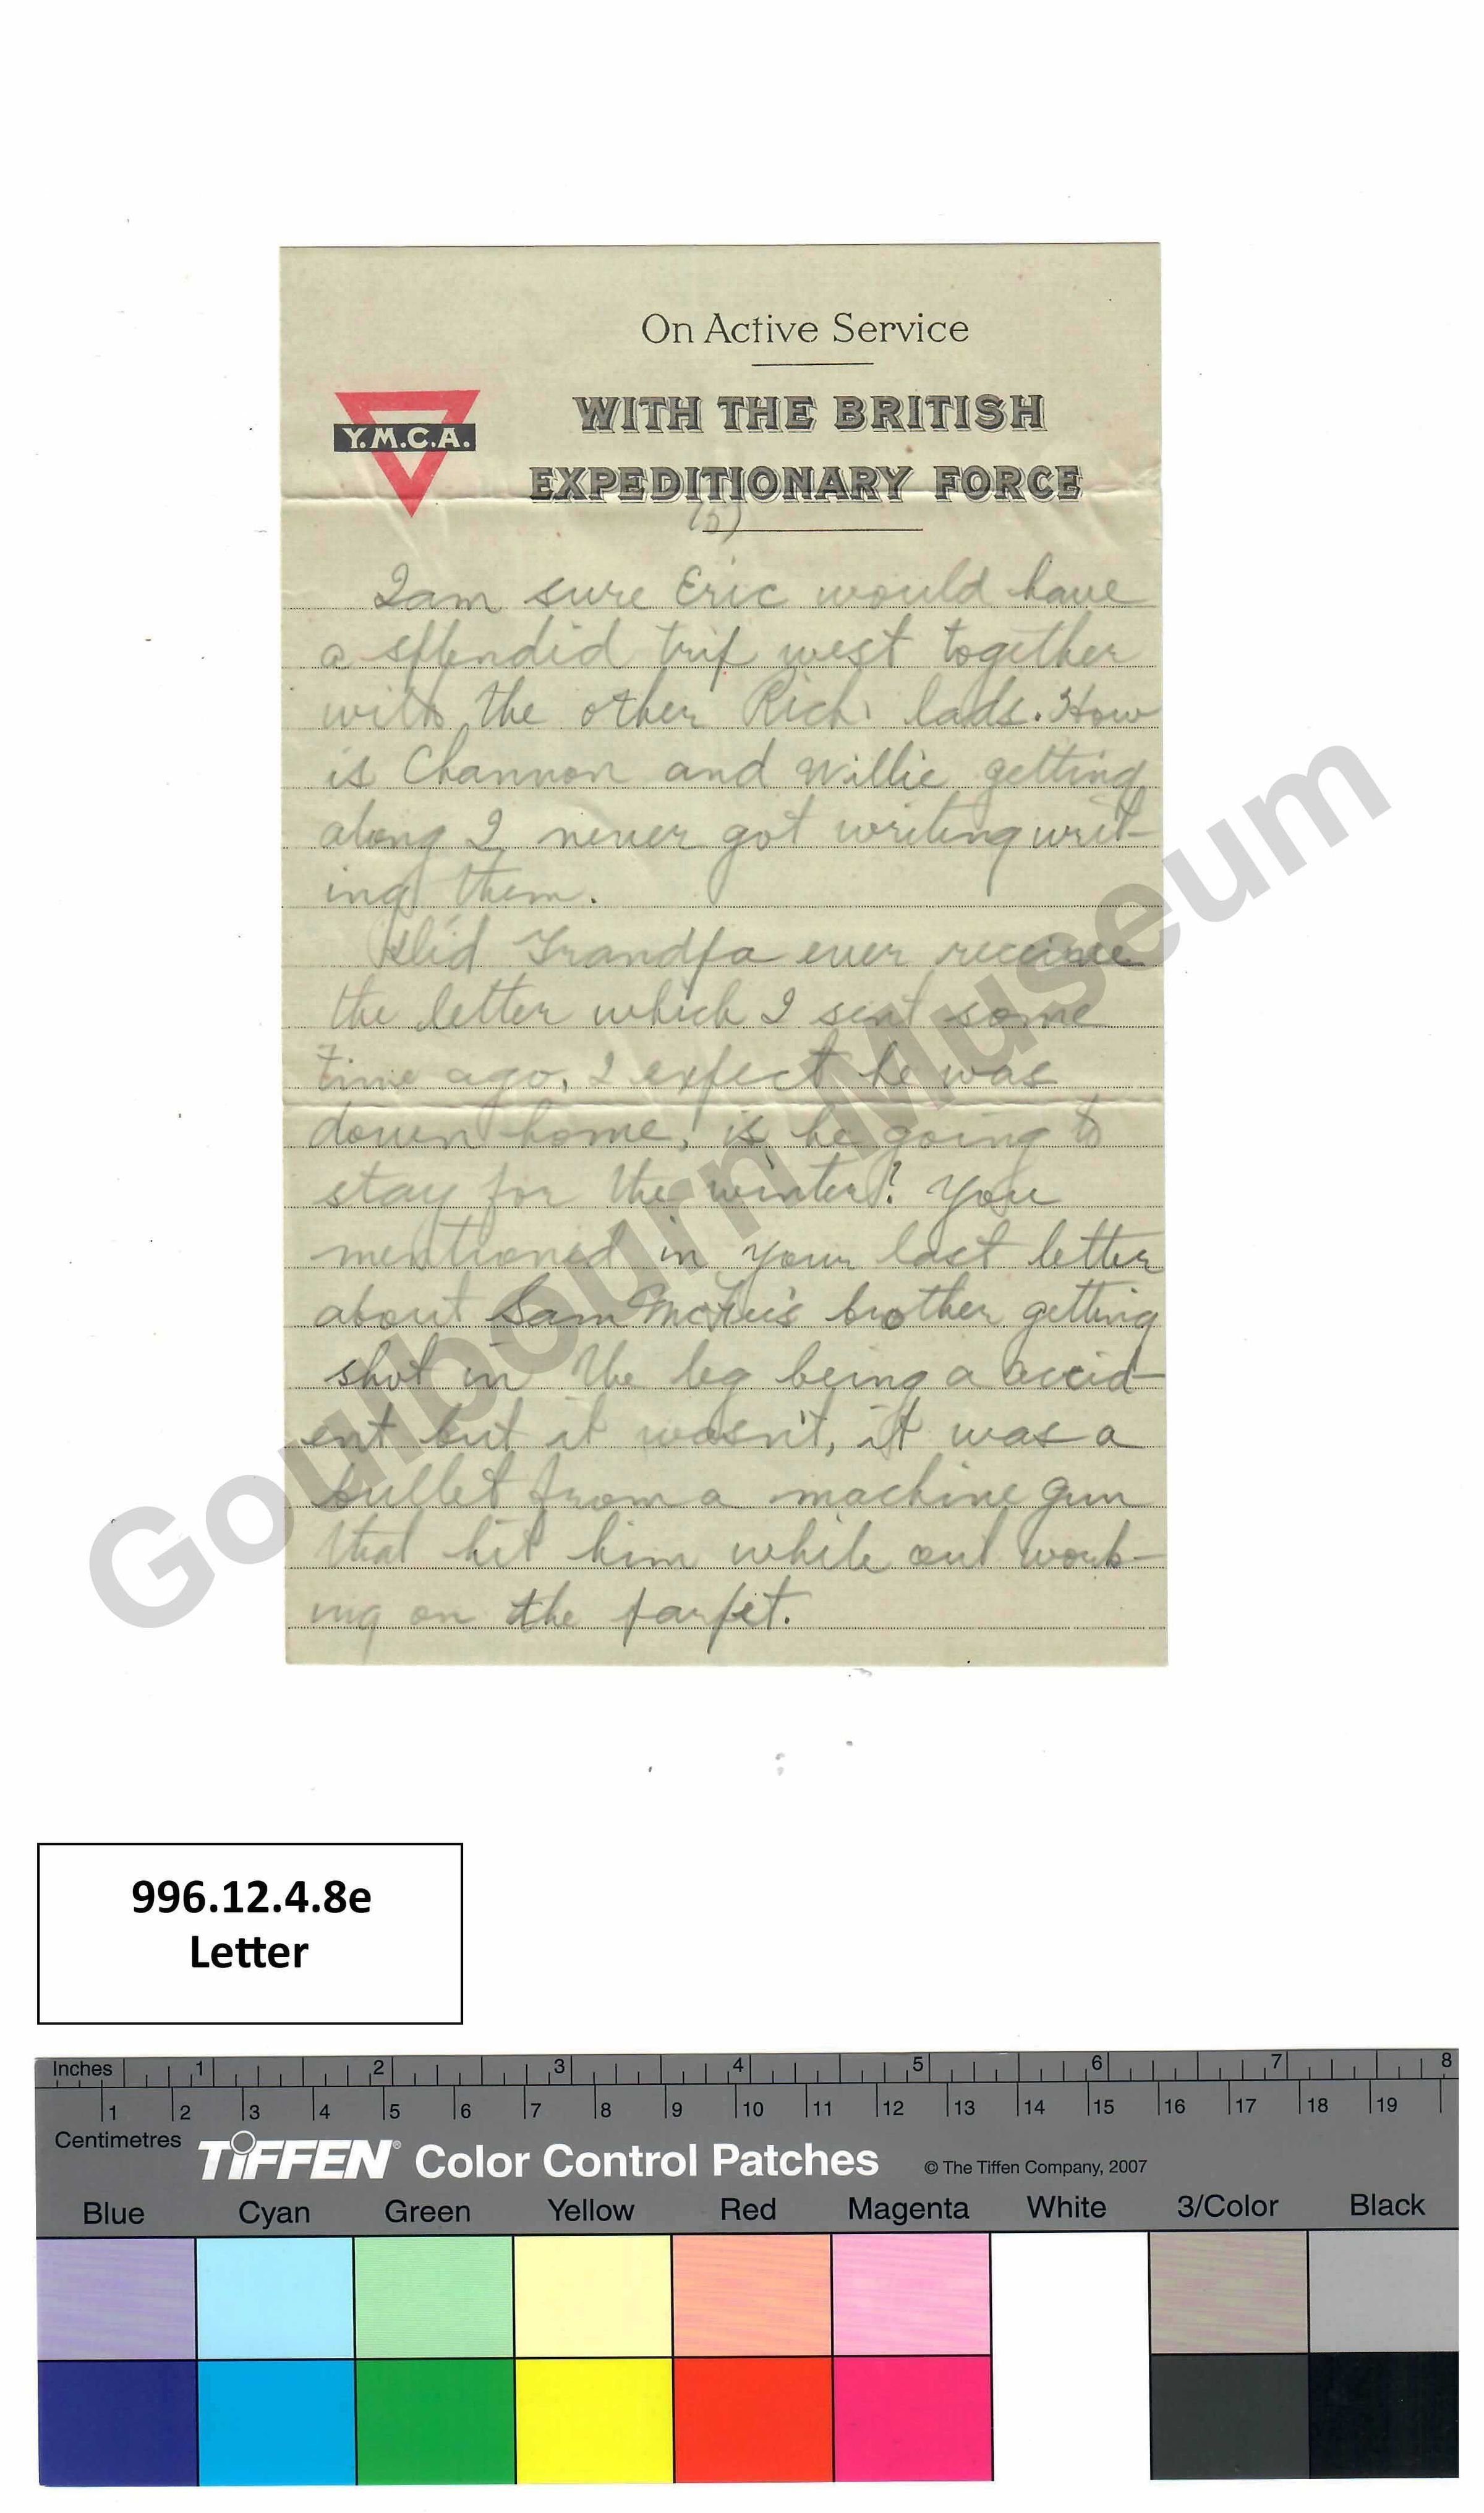 On Active Service
Y.M.C.A.
WITH THE BRITISH
EXPEDITIONARY FORCE
(5)
I am sure Eric would have
a splendid trip west together
with the other Rich. lads. How
is Channon and Willie getting
along I never got writing writ-
ing them.
Did Grandpa ever receive
the letter which I sent some
time ago, I expect he was
down home, is he going to
stay for the winter? You
mentioned in your last letter
about Sam brother getting
shot in the leg being a accid-
ent but it wasn't, it was a
bullet from a machine gun
that hit him while out work-
ing on the parpet.
Goulbourn Museum
996.12.4.8e
Letter
Inches 1 2 3 4 5 6 7 8
1 2 3 4 5 6 7 8 9 10 11 12 13 14 15 16 17 18 19
Centimetres
TIFFEN® Color Control Patches © The Tiffen Company, 2007
Blue Cyan Green Yellow Red Magenta White 3/Color Black